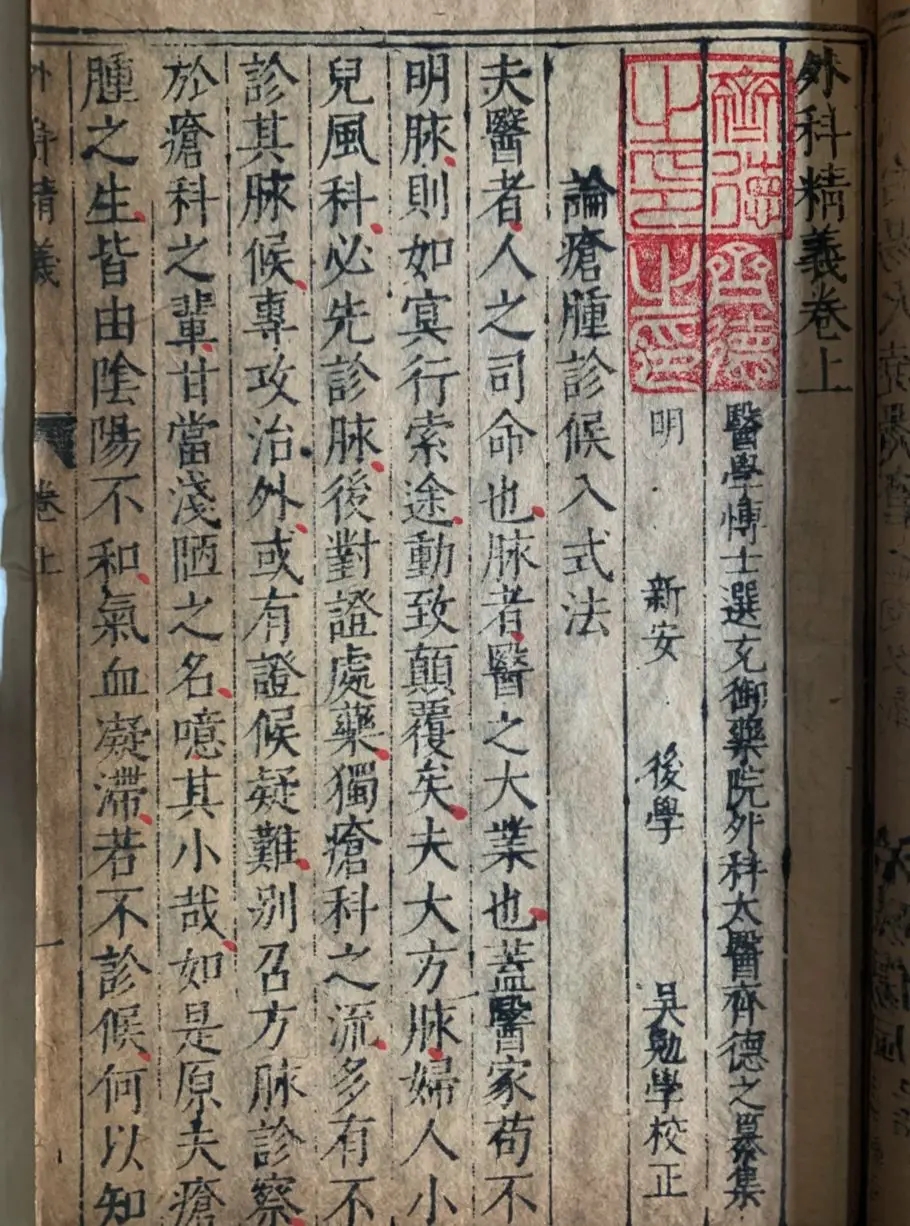 外科精義卷上
醫學博士選充御藥院外科太醫齊德之纂集
齊德之印
齊德之印
明 新安 後學 吳勉學校正
論瘡腫診候入式法
夫醫者人之司命也脉者醫之大業也蓋醫家苟不
明脉則如㝠行索途動致顛覆矣夫大方脉婦人小
兒風科必先診脉後對證處藥獨瘡科之流多有不
診其脉候專攻治外或有證候疑難别召方脉診察
於瘡科之輩甘當淺陋之名噫其小哉如是原夫瘡
腫之生皆由陰陽不和氣血凝滯若不診候何以知
外科精義 卷上 一